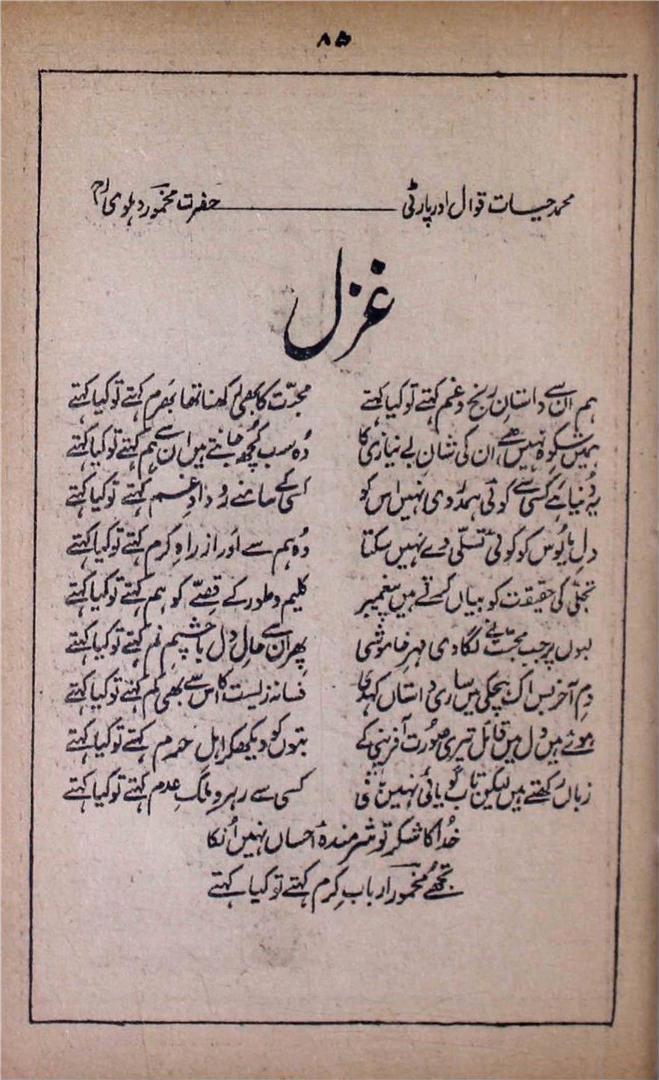 ۸۵
محمد حیات قوال اور پارٹی ——— حضرت مخمور دہلوی رح
غزل
ہم ان سے داستانِ رنج و غم کہتے تو کیا کہتے محبت کا بھی رکھنا تھا بھرم کہتے تو کیا کہتے
ہمیں شکوہ نہیں ہے ان کی شانِ بے نیازی کا وہ سب کچھ جانتے ہیں ان سے ہم کہتے تو کیا کہتے
یہ دنیا ہے کسی سے کوئی ہمدردی نہیں اس کو کسی کے سامنے رودادِ غم کہتے تو کیا کہتے
دلِ مایوس کو کوئی تسلی دے نہیں سکتا وہ ہم سے اور از راہِ کرم کہتے تو کیا کہتے
تجلی کی حقیقت کو بیاں کرتے ہیں پیغمبر کلیم و طور کے قصے کو ہم کہتے تو کیا کہتے
لبوں پر جب محبت نے لگا دی مہرِ خاموشی پھر ان سے حالِ دل با چشمِ نم کہتے تو کیا کہتے
دمِ آخر بس اک ہچکی میں ساری داستاں کہدی فسانہ زیست کا اس سے بھی کم کہتے تو کیا کہتے
ہوئے ہیں دل میں قائل تیری صورت آفرینی کے بتوں کو دیکھکر اہلِ حرم کہتے تو کیا کہتے
زباں رکھتے ہیں لیکن تابِ گویائی نہیں کسی سے رہروِ ملکِ عدم کہتے تو کیا کہتے
خدا کا شکر تو شرمندۂ احساں نہیں انکا
تجھے مخمور اربابِ کرم کہتے تو کیا کہتے